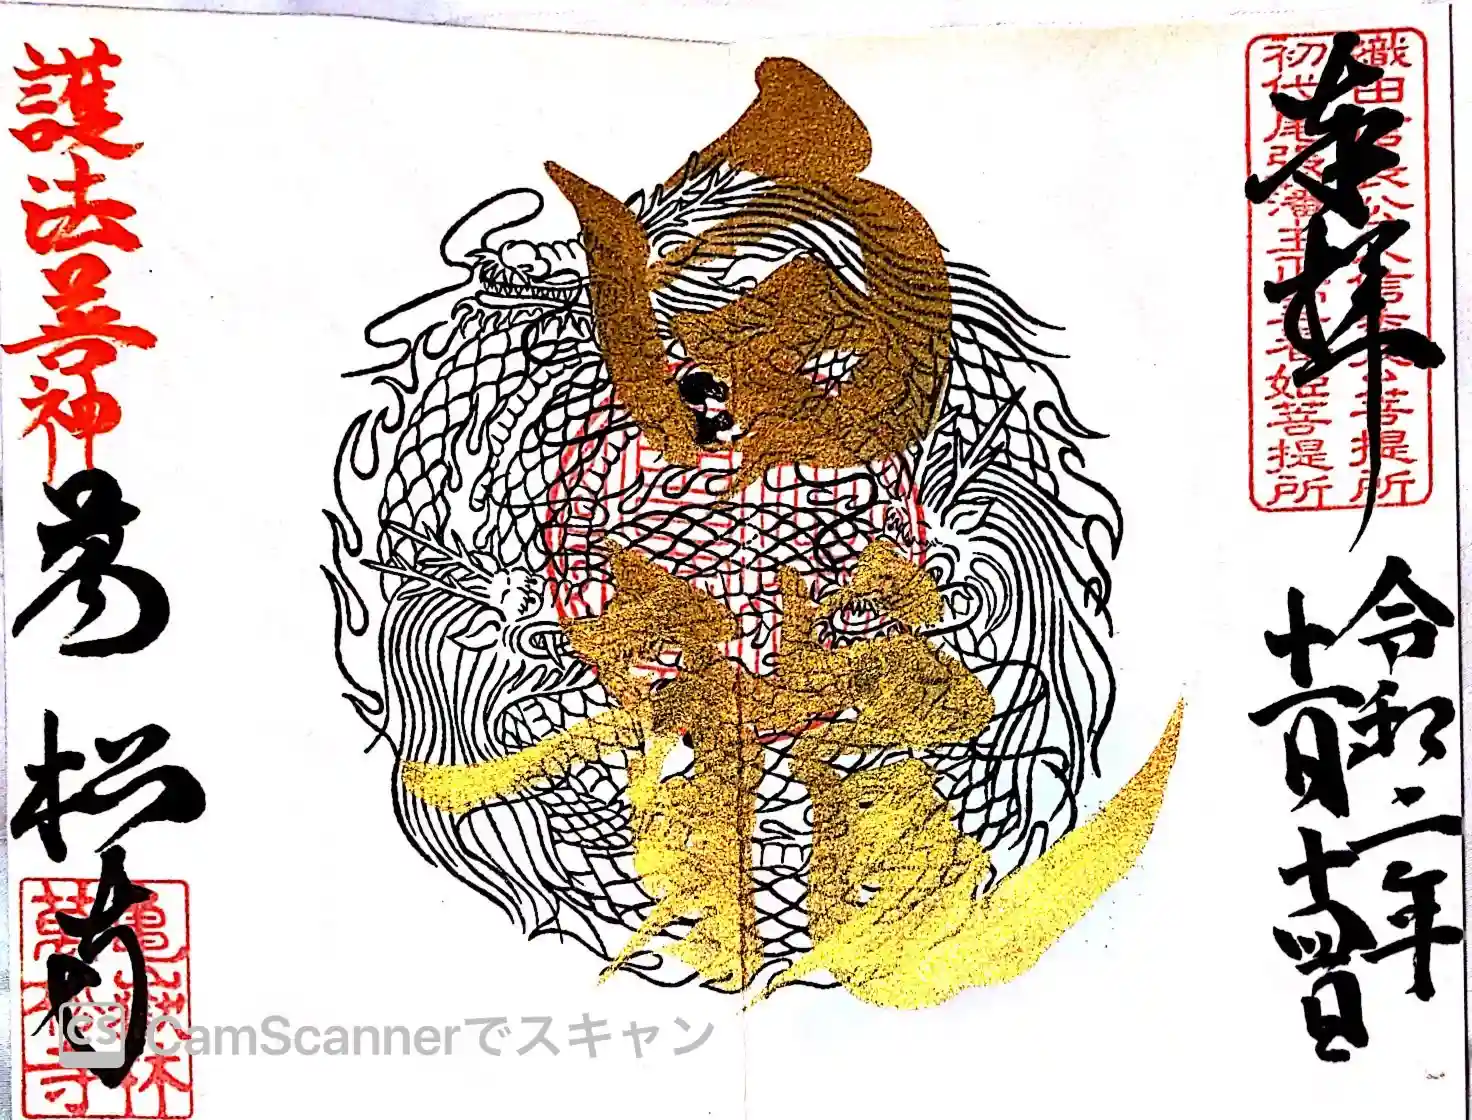 奉拝
織田信長公父信秀公菩提所
初代尾張藩主正室春姫菩提所
令和二年
十一月十四日
護法善神
萬松寺
亀岳林
萬松寺
CamScannerでスキャン